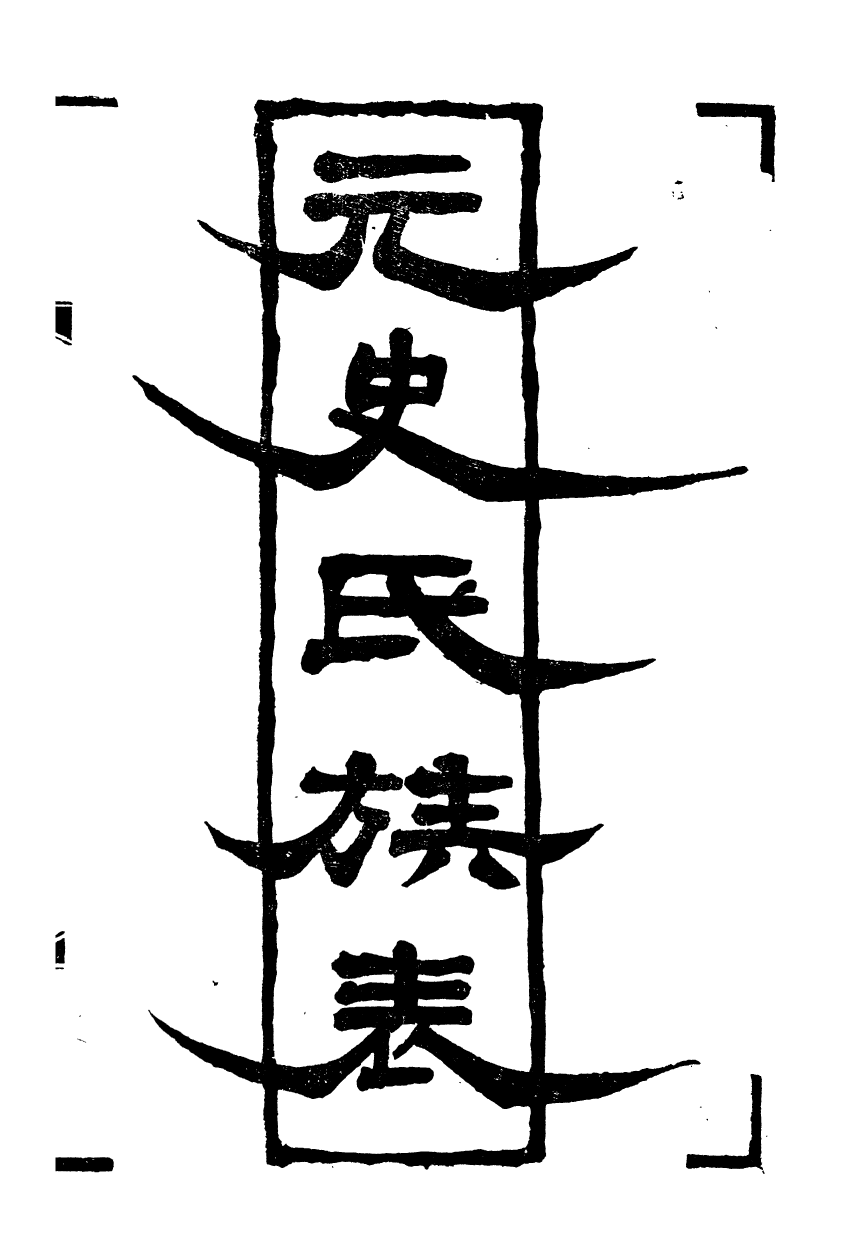 元史氏族表